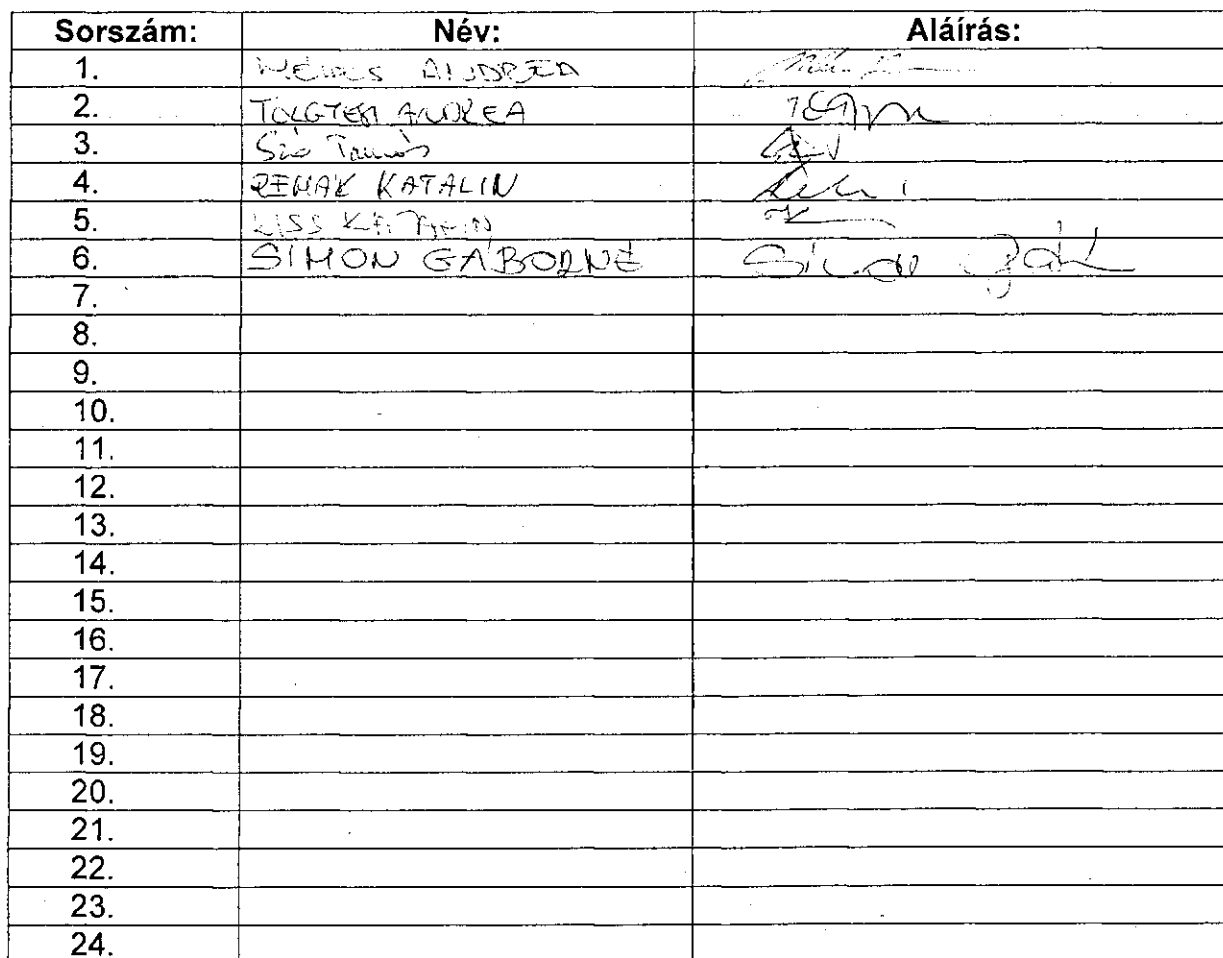 Sorszám: Név: Aláírás:
1. ANDREA
2. TÖLGYESI ANDREA
3. Tamás
4. REMAK KATALIN
5. KISS KATALIN
6. SIMON GÁBORNÉ Simon
7.
8.
9.
10.
11.
12.
13.
14.
15.
16.
17.
18.
19.
20.
21.
22.
23.
24.